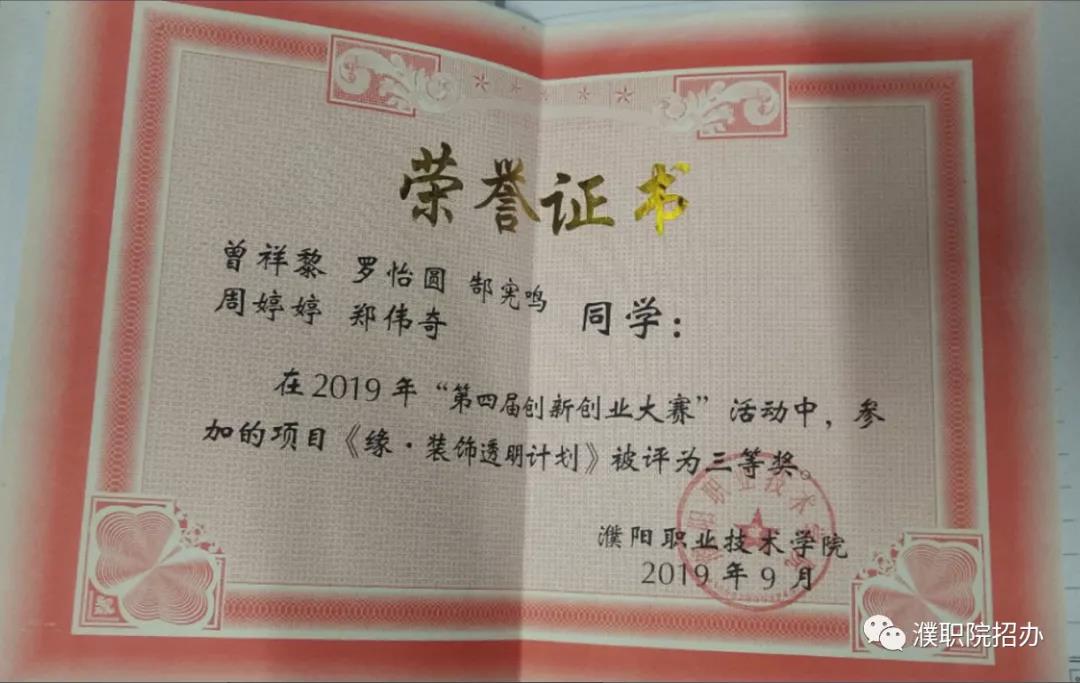 荣誉证书
曾祥黎 罗怡圆 郜宪鸣
周婷婷 郑伟奇 同学：
在2019年“第四届创新创业大赛”活动中，参
加的项目《缘·装饰透明计划》被评为三等奖。
濮阳职业技术学院
2019年9月
濮阳职业技术学院
濮职院招办